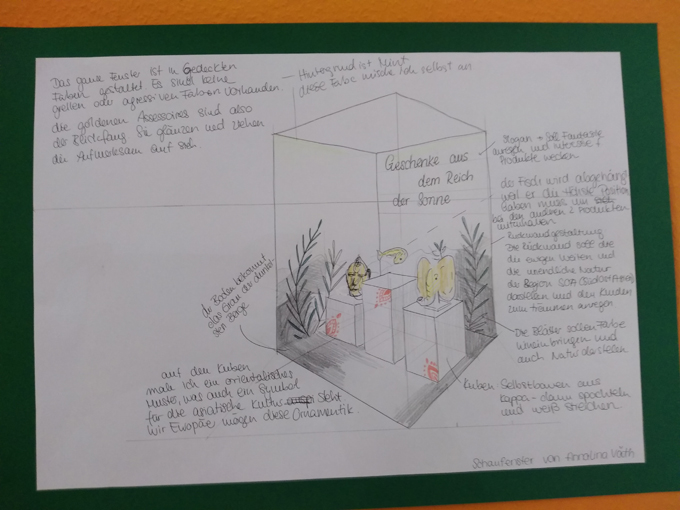 Das ganze Fenster ist in Gedeckten
Farben gestaltet. Es sind keine
grellen oder agressiven Farben vorhanden.
die goldenen Assessoires sind also
der Blickfang Sie glänzen und ziehen
die Aufmerksam auf sich.
Hintergrund ist Mint
diese Farbe mische ich selbst an
Geschenke aus
dem Reich
der Sonne
Slogan + soll Fantasie
und Interesse f
Produkte wecken
der Fisch wird abgehängt
weil er die Position
haben muss um
bei den anderen 2 Produkten
mitzuhalten
Rückwandgestaltung
Die Rückwand soll die
die ewigen Weiten und
die unendliche Natur
der Region SOA (Südostasien)
darstellen und den Kunden
zum träumen anregen
Die Blätter sollen Farbe
hineinbringen und
auch Natur darstellen.
Kuben - Selbstbauen aus
Kappa - dann spachteln
und weiß streichen.
der Boden bekommt
das Grau der dunkel-
sten Berge
auf den Kuben
male ich ein orientalisches
Muster, was auch ein Symbol
für die asiatische Kultur steht
wir Europäer mögen diese Ornamentik
Schaufenster von Annalina